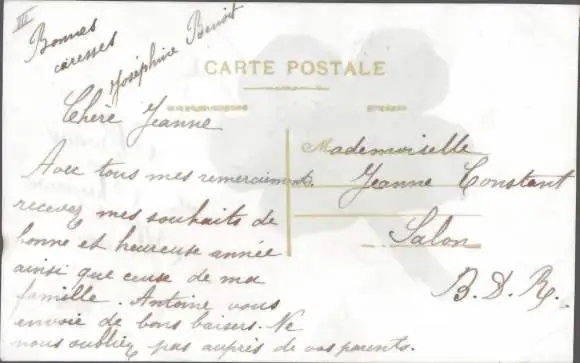 III
Bonnes
caresses
Joséphine Benoit
CARTE POSTALE
Chère Jeanne
Avec tous mes remerciments.
recevez mes souhaits de
bonne et heureuse année
ainsi que ceuse de ma
famille. Antoine vous
envoie de bons baisers. Ne
nous oubliez pas auprès de vos parents.
Mademoiselle
Jeanne Constant
Salon
B. D. R.